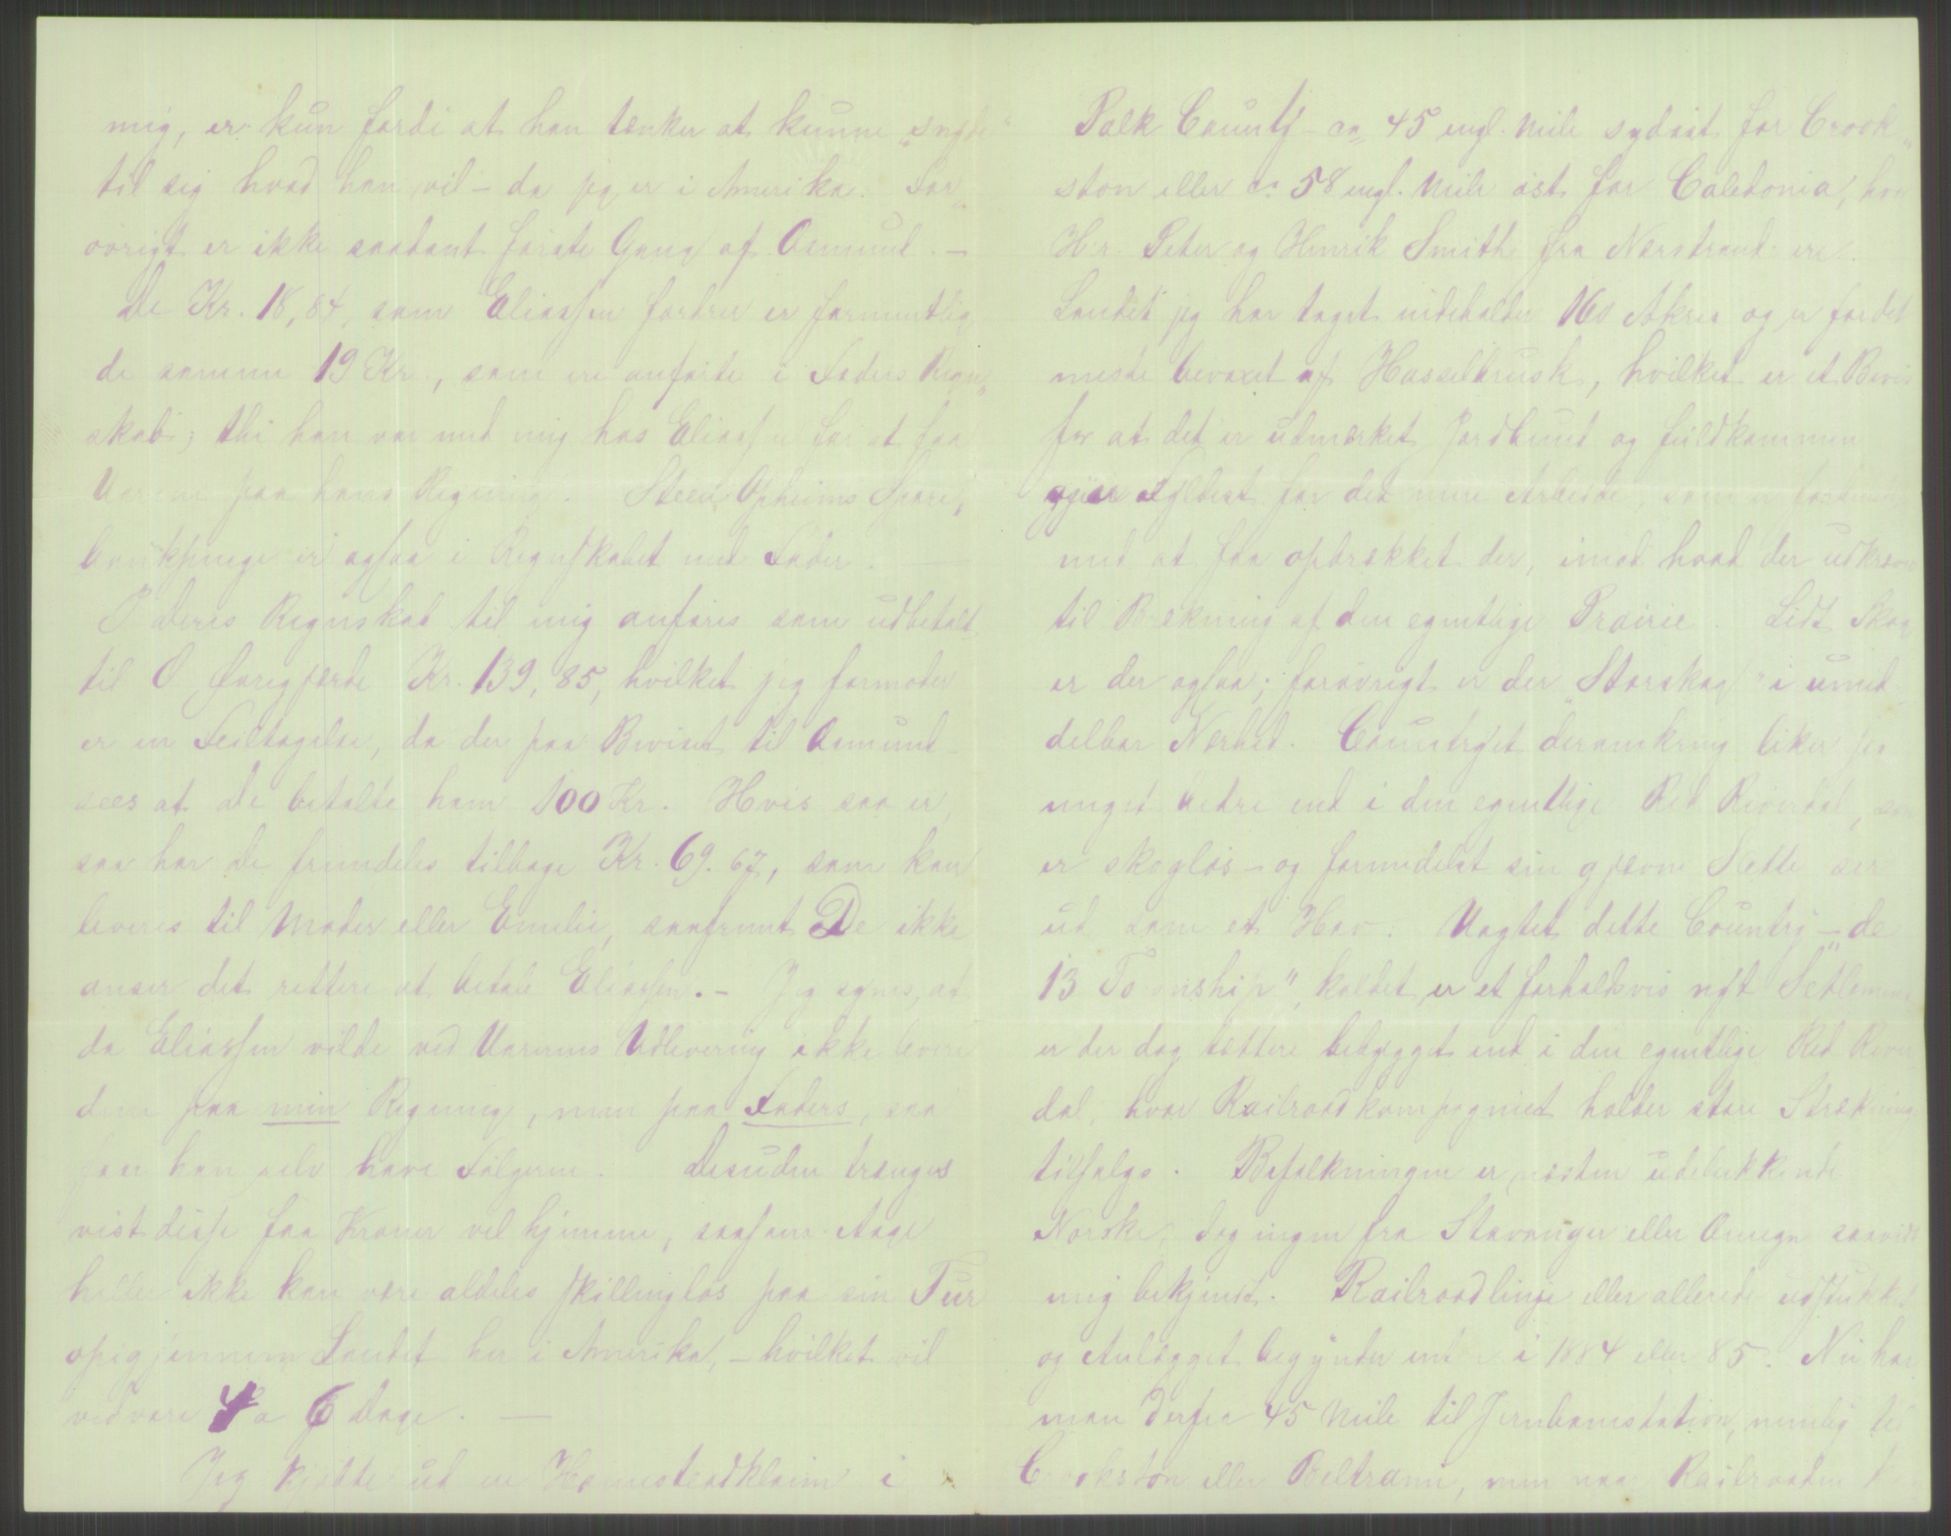 mig, er kun fordi at han tænker at kunne "snyde"
til sig hvad han vil – da jeg er i Amerika. For„
øvrigt er ikke saadant første Gang af Osmund. –
De Kr. 18,84, som Eliassen fordrer er formentlig
de samme 19 Kr., som ere anførte i Faders Regn„
skab; thi han var med mig hos Eliassen for at faa
Varene paa hans Regning. Steen Opheims Spare„
bankpenge er ogsaa i Regnskabet med Fader. —
I Deres Regnskab til mig anføres som udbetalt
til O. Øvregjerde Kr. 139,85, hvilket jeg formoder
er en Feiltagelse, da der paa Beviset til Osmund
sees at De betalte ham 100 Kr. Hvis saa er,
saa har De fremdeles tilbage Kr. 69.67, som kan
leveres til Moder eller Emilie, saafremt De ikke
anser det rettere at betale Eliassen. – Jeg synes, at
da Eliassen vilde ved Varernes Udlevering ikke levere
dem paa min Regning, men paa Faders, saa
faar han selv have Følgerne. Desuden trænges
vist disse faa Kroner vel hjemme, saasom Aage
heller ikke kan være aldeles skillingløs paa sin Tur
opigjennem Landet her i Amerika, – hvilket vil
vedvare 4 a 6 Dage. —
Jeg kjøbte ud en Homesteadklaim i
Polk County – ca 45 engl. Mile sydøst for Crook„
ston eller ca 58 engl. Mile øst for Caledonia, hvor
Hr. Peter og Henrik Smith fra Nærstrand ere.
Landet jeg har taget indeholder 160 Akres og er fordet
meste bevoxet af Hasselbrusk, hvilket er et Bevis
for at det er udmærket Jordbund og fuldkommen
gjør Fyldest for det mere Arbeide, som er forbundet
med at faa opbrækket der, imod hvad der udkræves
til Brækning af den egentlige Prairie. Lidt Skog
er der ogsaa; forøvrigt er der "Storskog" i umid„
delbar Nærhed. Countryet deromkring liker jeg
meget bedre end i den egentlige Red Riverdal, som
er skogløs – og formedelst sin gjævne Slette ser
ud som et Hav. Uagtet dette Country – "de
13 Township", kaldet, er et forholdsvis nyt Setlement
er der dog tættere bebygget end i den egentlige Red River
dal, hvor Railroadkompagniet holder store Strækninger
tilsalgs. Befolkningen er næsten udelukkende
Norske, dog ingen fra Stavanger eller Omegn saavidt
mig bekjendt. Railroadlinje eller allerede udstukket
og Anlægget begynder in i 1884 eller 85. Nu har
man derfra 45 Mile til Jernbanestation, nemlig til
Crookston eller Beltrami, men naar Railroaden